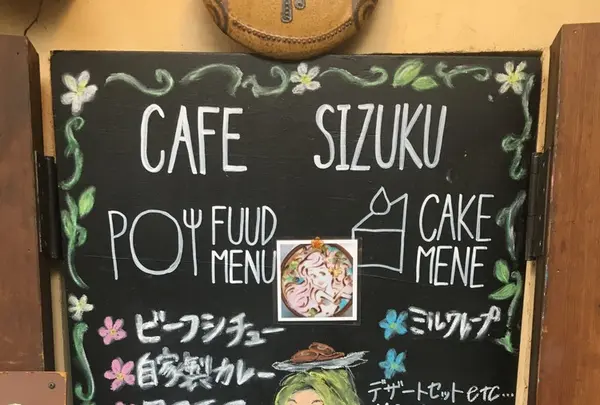 CAFE SIZUKU
FUUD
MENU
CAKE
MENE
ビーフシチュー
自家製カレー
ミルクレープ
デザートセットetc...